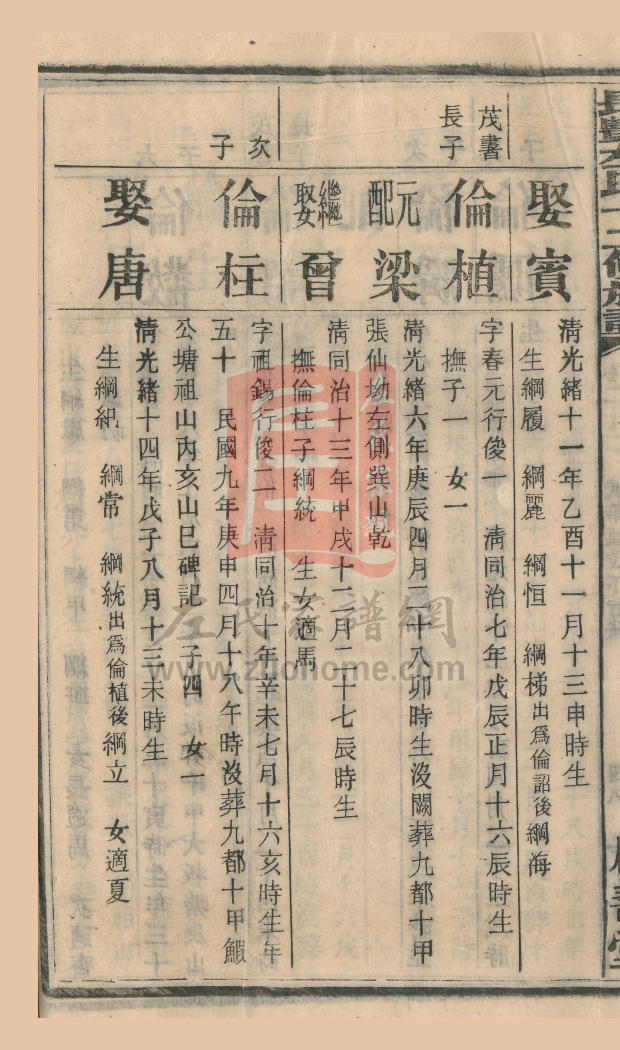 娶賓
清光緒十一年乙酉十一月十三申時生
生綱履 綱麗 綱恒 綱梯出爲倫詔後綱海
茂書長子
倫植
字春元行俊一 淸同治七年戊辰正月十六辰時生
撫子一 女一
元配梁
淸光緒六年庚辰四月二十八卯時生沒闕葬九都十甲
張仙坳左側巽山乾
繼娶曾
淸同治十三年甲戌十二月二十七辰時生
撫倫柱子綱統 生女適馬
次子
倫柱
字祖錫行俊二 淸同治十年辛未七月十六亥時生年
五十 民國九年庚申四月十八午時沒葬九都十甲鰕
公塘祖山內亥山巳碑記 子四 女一
娶唐
淸光緒十四年戊子八月十三未時生
生綱紀 綱常 綱統出爲倫植後綱立 女適夏
左氏家譜網
www.zuohome.com